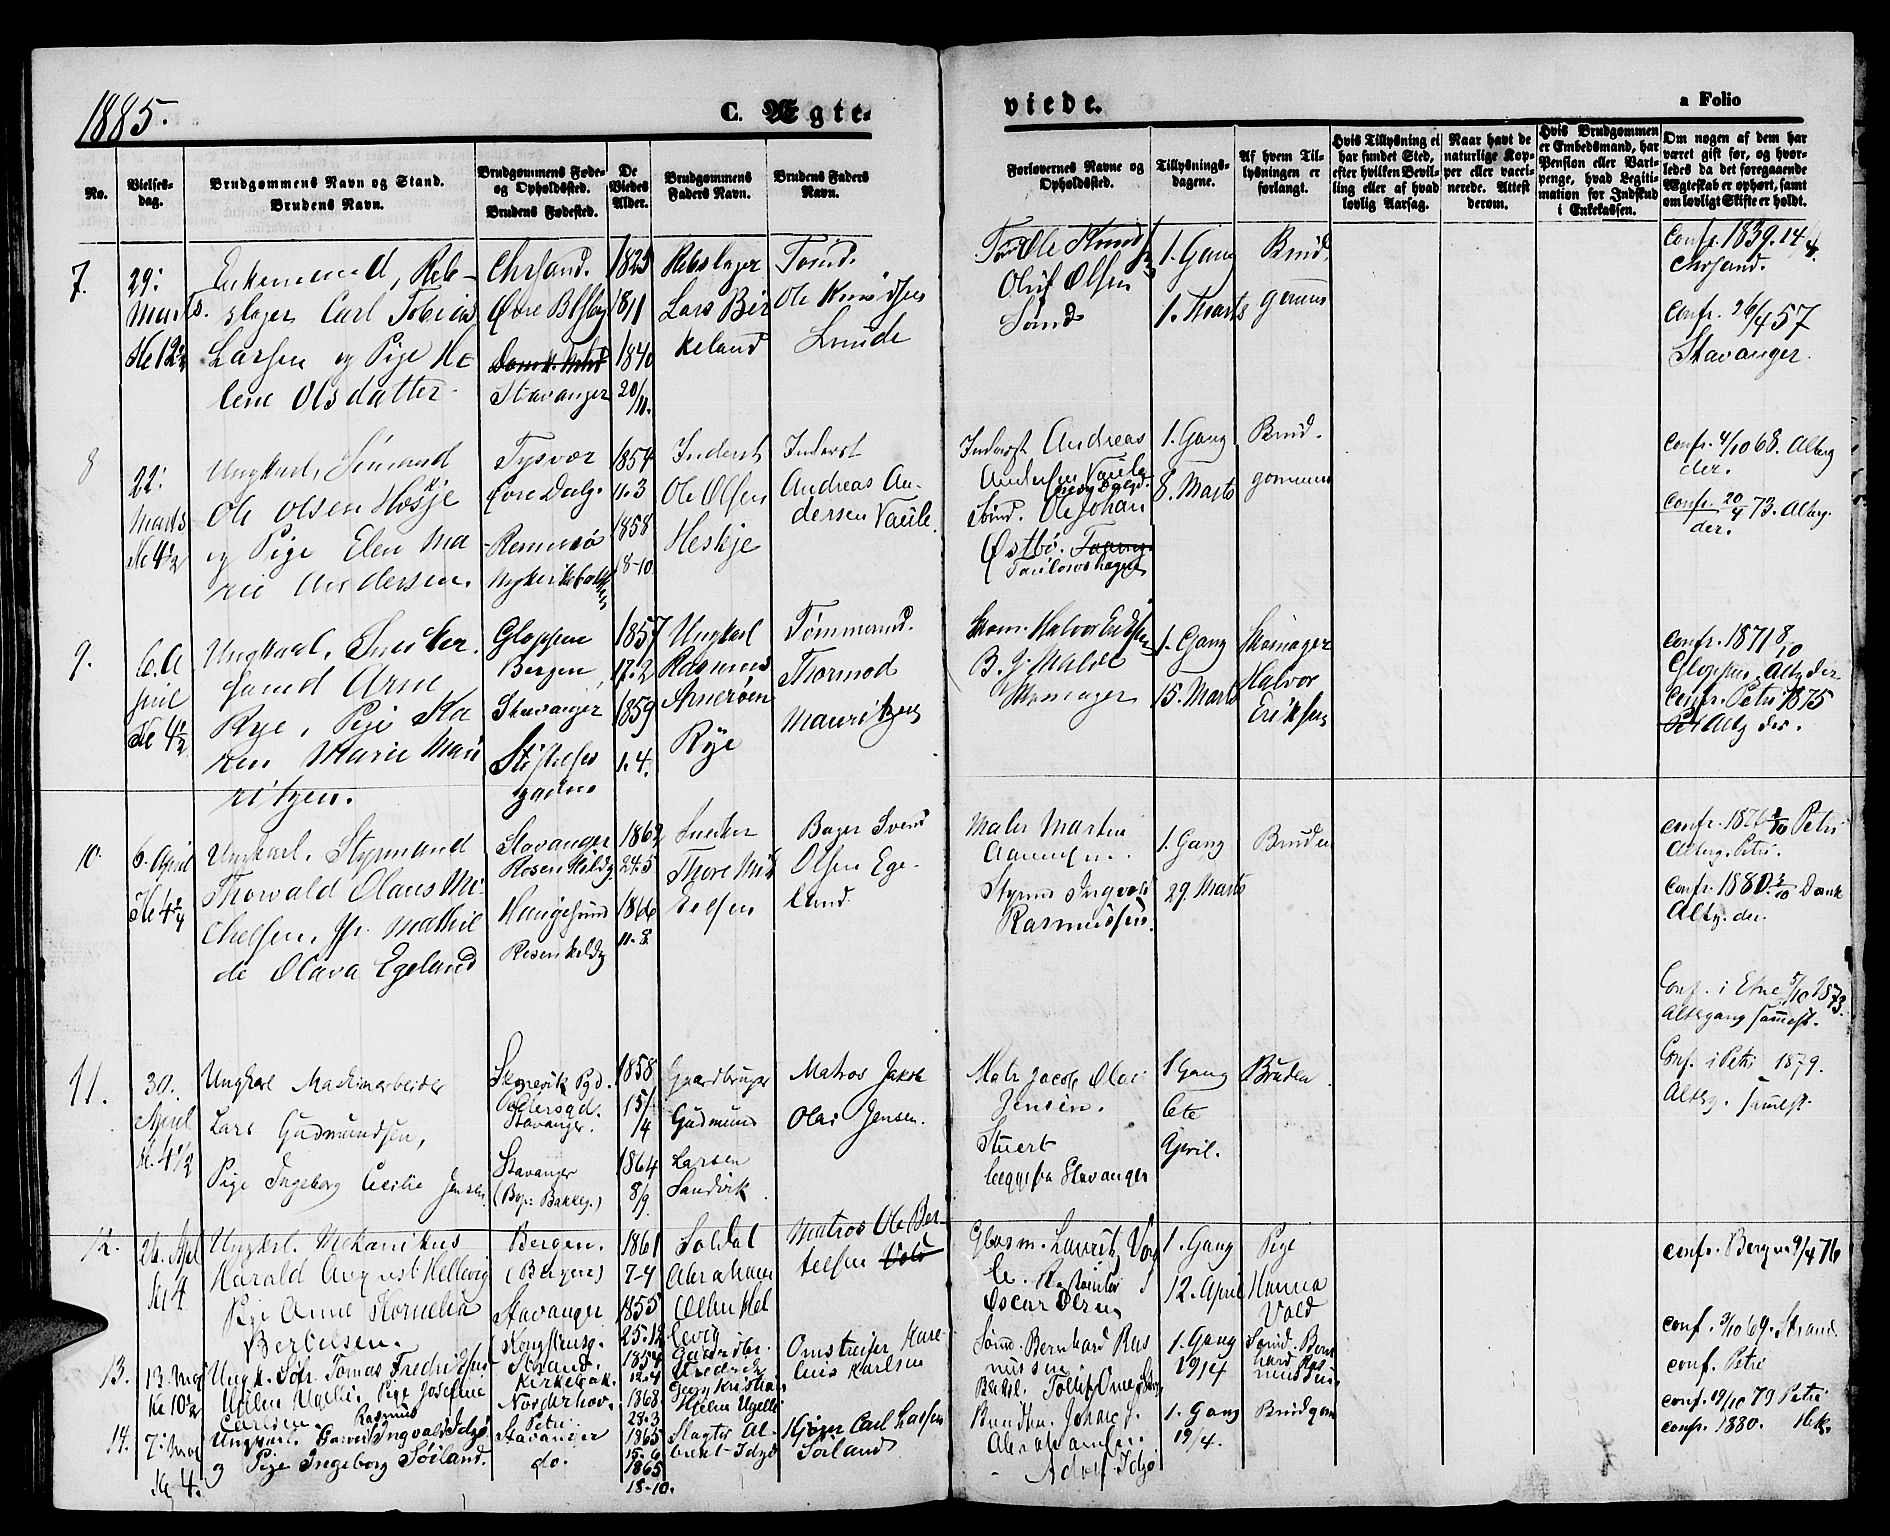 1885.
C. Ægte-
viede.
a Folio
No.
Vielses-
dag.
Brudgommens Navn og Stand.
Brudens Navn.
Brudgommens Føde-
og Opholdssted.
Brudens Fødested.
De
Viedes
Alder.
Brudgommens
Faders Navn.
Brudens Faders
Navn.
Forlovernes Navne og
Opholdssted.
Tillysnings-
dagene.
Af hvem Til-
lysningen er
forlangt.
Hvis Tillysning ei
har fundet Sted,
efter hvilken Bevil-
ling eller af hvad
lovlig Aarsag.
Naar havt de
naturlige Kop-
per eller vacci-
nerede. Attest
derom.
Hvis Brudgommen
er Embedsmand, har
Pension eller Vart-
penge, hvad Legiti-
mation for Indskud
i Enkekassen.
Om nogen af dem har
været gift før, og hvor-
ledes da det foregaaende
Ægteskab er ophørt, samt
om lovligt Skifte er holdt.
7.
29:
Marts.
Kl 12½
Enkemand, Reb-
slager Carl Tobias
Larsen og Pige He
lene Olsdatter
Chrsand.
Øvre Blfsbg
Stavanger
1825
18/1
1840
20/11.
Rebslager
Lars Bir
keland
Tømd.
Ole Knudsen
Lunde
Ole Knuds
Oluf Olsen
Sømd
1. Gang
1. Marts
Brud
gommen
Confr. 1839. 14/4
Chrsand.
Confr. 26/4 57
Stavanger.
8
22:
Marts
Kl 4½
Ungkarl, Sømand
Ole Olsen Heskje
og Pige Elen Ma
rie Andersen.
Tysvær
Øvre Dalg.
Rennesø
Nykirkebakken
1854
11.3
1858
18-10
Inderst
Ole Olsen
Heskje
Inderst
Andreas An-
dersen Vaule.
Inderst Andreas
Andersen Vaule
Sømd. Ole Johan
Østbø.
1. Gang
8. Marts
Brud.
gommen
Confr. 4/10 68. Altbg
der.
Confr. 20/4 73. Altbg.
der.
9.
6. A
pril
Kl 4½
Ungkarl, Snedker
svend Arne
Rye, Pige Ka
ren Marie Mau
ritzen.
Gloppen
Bergen
Stavanger
gaden
1857
17.2
1859
1.4.
Ungkarl
Rasmus
Arnesøen
Rye
Tømmermd.
Thormod
Mauritzen
Skom. Halvor Eriksen
B. J. Malde
Skomager
1. Gang
15. Marts
Skomager
Halvor
Eriksen
Confr. 1871 8/10
Gloppen, Altbg der
Confr. Petri 1875
Altbg der.
10.
6. April
Kl 4¾
Ungkarl, Styrmand
Thorvald Olaus Mi-
chelsen, Pi. Mathil
de Olava Egeland
Stavanger
Rosenkildg
Haugesund
Rosenkildg
1862
24.5
1866
11.8.
Snedker
Thore Mik
kelsen
Bager Svend
Olsen Ege-
land.
Maler Martin
Aanensen.
Styrm Ingvald
Rasmussen.
1. Gang
29. Marts
Bruden
confr. 1876 8/10 Petri
Altbg. Petri.
Confr. 1880. 3/10 Domk
Altbg. der.
11.
30.
April
Kl. 4 1/2
Ungkarl Maskinarbeider
Lars Gudmundsen,
Pige Ingeborg Cecilie Jensen
Skonevik Pgd.
Pedersgd.
Stavanger.
Stavanger
(Bop: Bakkeg.)
1858
15/4
1864
8/9.
Gaardbruger
Gudmund
Larsen
Sandvik
Matros Jakob
Olai Jensen.
Maler Jacob Olai
Jensen.
Stuert
begge fra Stavanger
1 Gang
6te
April.
Bruden
Conf. i Etne 5/10 1873.
Altergang sammest.
Conf. i Petri 1879.
Altbg. sammest.
12.
26. Apl
Kl 4
Ungkl. Mekanikus
Harald August Hellevig
Pige Anne Kornelia
Bertelsen.
Bergen.
(Bergen)
Stavanger
Kongstensg.
1861
7-4
1855
25.12
Soldat
Abraham
Olsen Hel
levig
Matros Ole Ber
telsen Vold
Glasm. Lauritz Vol
Oscar Olsen
1. Gang
12. April
Pige
Hanna
Vold
confr. Bergen 9/4 76
conf. 3/10 69. Strand
13.
13. Mai
Kl 10½
Ungk. Søfr. Tomas Fredriksen
Hjelm Ugelli, Pige Josefine
Carlsen.
Strand.
Kirkebak.
Norderhov.
Petri.
1854
12.4
1868.
28.3
Fredrik
Georg Kristian
Hjelm Ugelli
Omstreifer Kare-
lius Karlsen
Sømd. Bernhard Ras
mussen
1. Gang
19/4
Sømd. Bern
hard Ras
mussen.
conf. Petri
confr. 19/10 79 Petri
14.
7: Mai
Kl 4.
Ungkarl. Rasmus Ingvald Idsø
og Pige Ingeborg Sørland.
Stavanger
do.
1865
15. 6
1865
18-10.
Slagter Al-
brekt Idsø
Kjører Carl Larsen
Sørland
Abrahamsen.
Adolf Idsø
1. Gang
19/4.
Brudgom
confr. 1880.